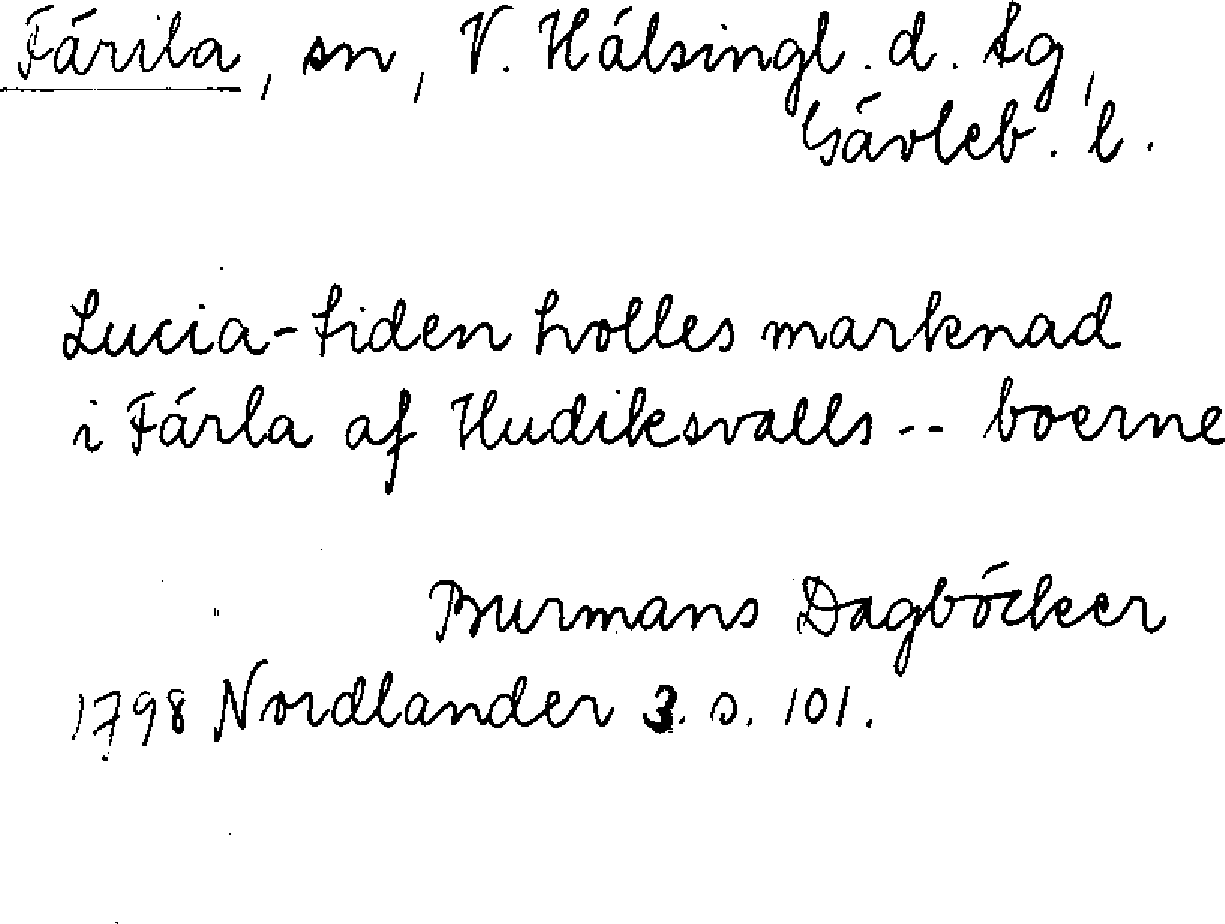 Färila, sn, V. Hälsingl. d. tg,
Gävleb. l.
Lucia-tiden holles marknad
i Färla af Hudiksvalls -- boerne
Burmans Dagböcker
1798 Nordlander 3. s. 101.